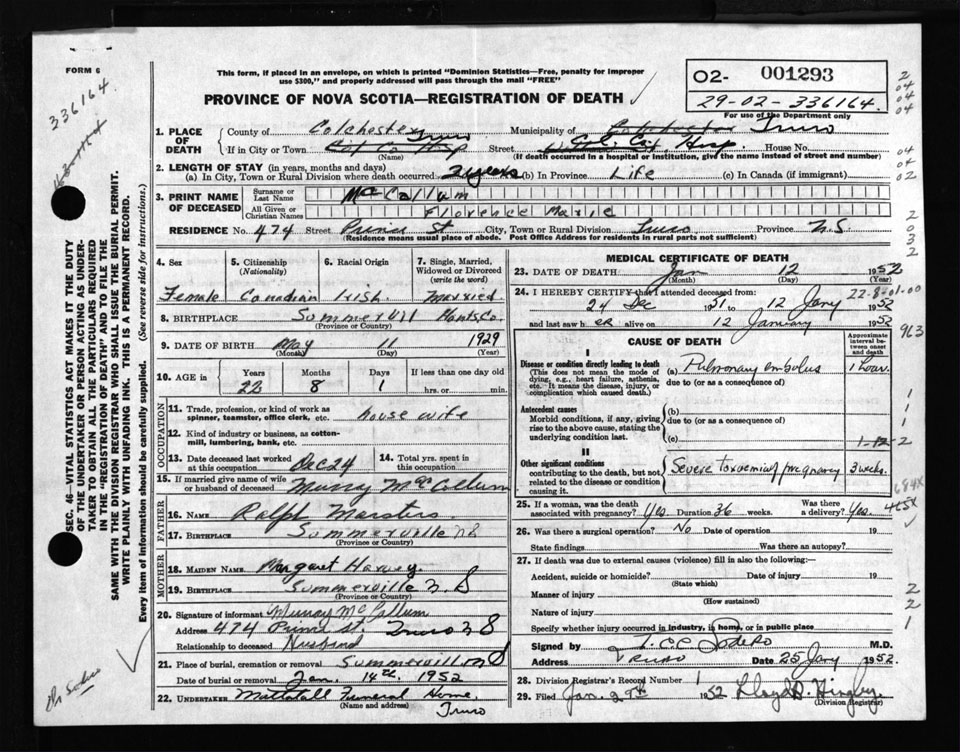 FORM 6
336164
This form, if placed in an envelope, on which is printed "Dominion Statistics—Free, penalty for improper
use $300," and properly addressed will pass through the mail "FREE"
PROVINCE OF NOVA SCOTIA—REGISTRATION OF DEATH
02- 001293
29-02-336164.
For use of the Department only
1. PLACE OF DEATH
County of Colchester Municipality of Colchester Truro
If in City or Town Truro Col Co Hosp Street Col. Co. Hosp. House No.
(Name) (If death occurred in a hospital or institution, give the name instead of street and number)
2. LENGTH OF STAY (in years, months and days)
(a) In City, Town or Rural Division where death occurred 2 years (b) In Province Life (c) In Canada (if immigrant)
3. PRINT NAME OF DECEASED
Surname or Last Name McCallum
All Given or Christian Names Florence Marie
RESIDENCE No. 474 Street Prince St City, Town or Rural Division Truro Province N.S
(Residence means usual place of abode. Post Office Address for residents in rural parts not sufficient)
4. Sex
5. Citizenship
(Nationality)
6. Racial Origin
7. Single, Married, Widowed or Divorced
(write the word)
Female Canadian Irish Married
8. BIRTHPLACE Summervill Hants Co.
(Province or Country)
9. DATE OF BIRTH May 11 1929
(Month) (Day) (Year)
10. AGE in
Years Months Days If less than one day old
22 8 1 hrs. or min.
OCCUPATION
11. Trade, profession, or kind of work as spinner, teamster, office clerk, etc. house wife
12. Kind of industry or business, as cotton-mill, lumbering, bank, etc.
13. Date deceased last worked at this occupation Dec 24
14. Total yrs. spent in this occupation
15. If married give name of wife or husband of deceased Murry MacCallum
FATHER
16. NAME Ralph Marsters
17. BIRTHPLACE Summerville NS
(Province or Country)
MOTHER
18. MAIDEN NAME Margaret Harvey
19. BIRTHPLACE Summerville N.S
(Province or Country)
20. Signature of informant Murray McCallum
Address 474 Prince St. Truro NS
Relationship to deceased Husband
21. Place of burial, cremation or removal Summervill NS
Date of burial or removal Jan. 14th. 1952
22. UNDERTAKER Mattatall Funeral Home,
(Name and address) Truro
MEDICAL CERTIFICATE OF DEATH
23. DATE OF DEATH Jan 12 1952
(Month) (Day) (Year)
24. I HEREBY CERTIFY that I attended deceased from:
22-8-01-00
24 Dec 1951 to 12 Jany 1952
and last saw her alive on 12 January 1952
963
CAUSE OF DEATH
Approximate interval between onset and death
I
Disease or condition directly leading to death
(This does not mean the mode of dying, e.g., heart failure, asthenia, etc. It means the disease, injury, or complication which caused death.)
(a) Pulmonary embolus 1 hour.
due to (or as a consequence of)
Antecedent causes
Morbid conditions, if any, giving rise to the above cause, stating the underlying condition last.
(b)
due to (or as a consequence of)
(c)
1-12-2
II
Other significant conditions
contributing to the death, but not related to the disease or condition causing it.
Severe toxaemia pregnancy 3 weeks.
684X
465X
25. If a woman, was the death associated with pregnancy? Yes. Duration 36 weeks. Was there a delivery? Yes.
26. Was there a surgical operation? No Date of operation 19
State findings Was there an autopsy?
27. If death was due to external causes (violence) fill in also the following:
Accident, suicide or homicide? Date of injury 19
(State which)
Manner of injury
(How sustained)
Nature of injury
Specify whether injury occurred in industry, in home, or in public place
Signed by M.D.
Address Truro Date 25 Jany 1952.
28. Division Registrar's Record Number 1
29. Filed Jan. 29th 1952
(Division Registrar)
SEC. 46—VITAL STATISTICS ACT MAKES IT THE DUTY
OF THE UNDERTAKER OR PERSON ACTING AS UNDER-
TAKER TO OBTAIN ALL THE PARTICULARS REQUIRED
IN THE "REGISTRATION OF DEATH" AND TO FILE THE
SAME WITH THE DIVISION REGISTRAR WHO SHALL ISSUE THE BURIAL PERMIT.
WRITE PLAINLY WITH UNFADING INK. THIS IS A PERMANENT RECORD.
Every item of information should be carefully supplied. (See reverse side for instructions.)